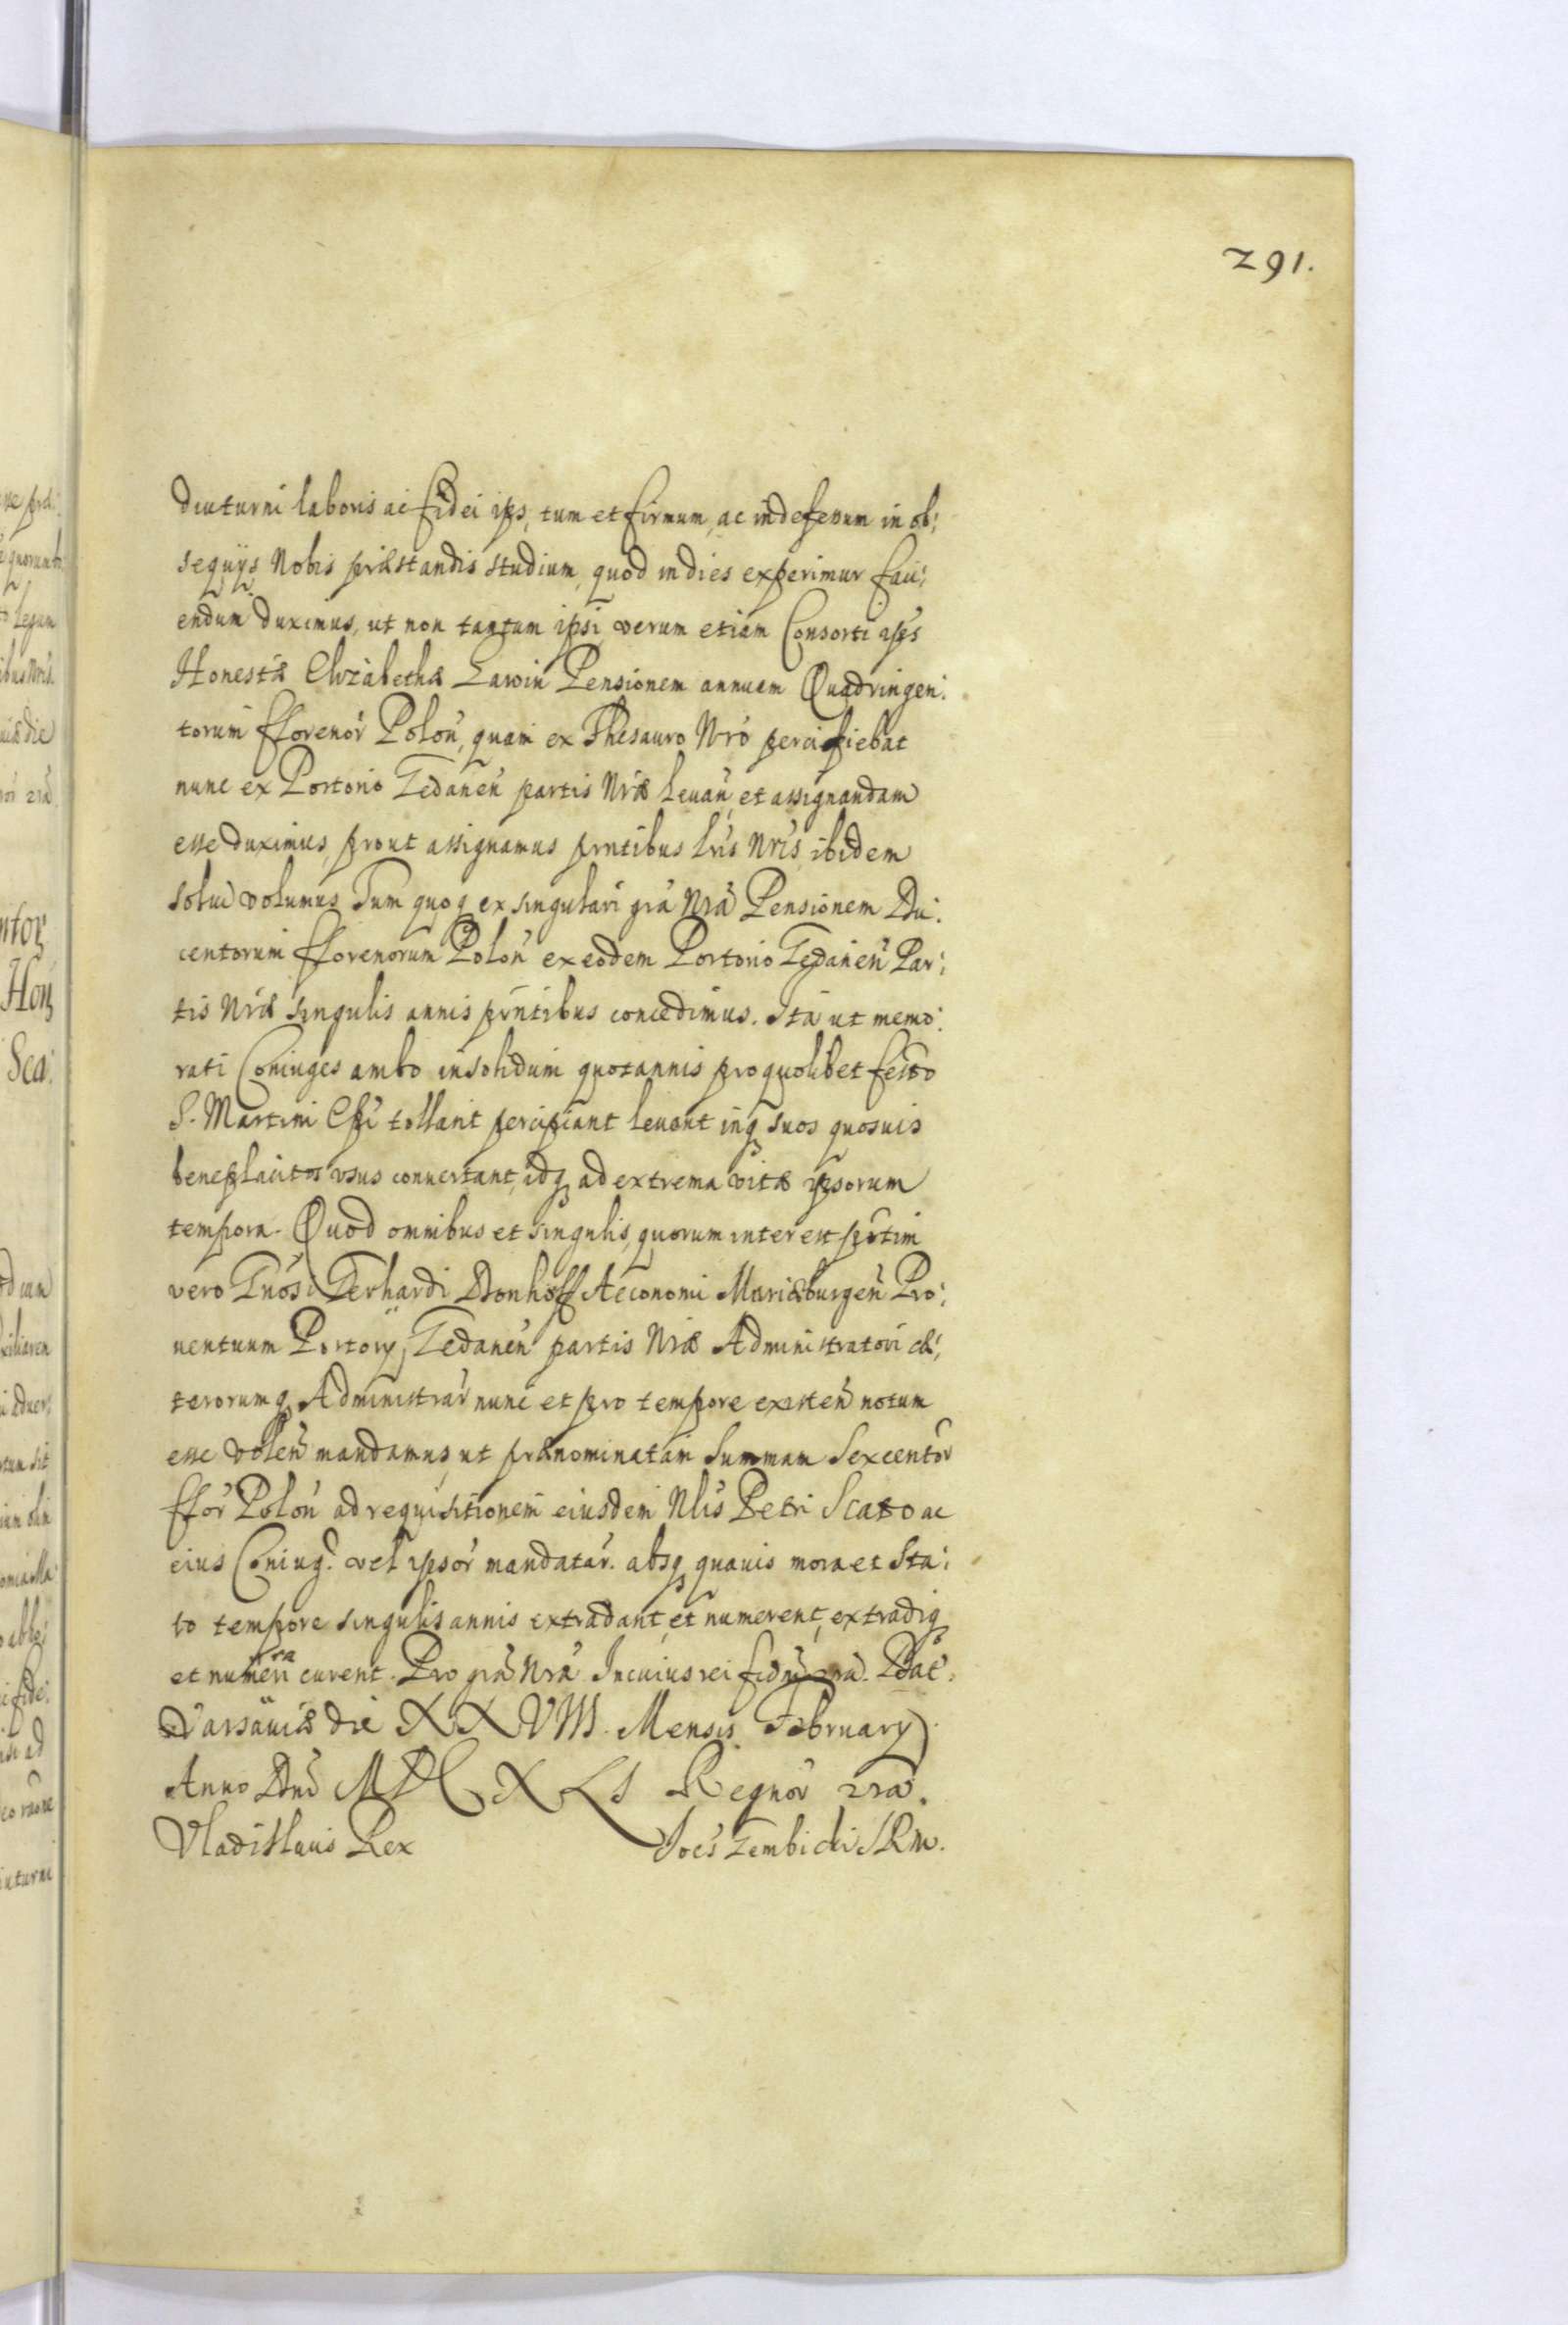 291.
diuturni laboris ac fidei ips, tum et firmum, ac indefessum in ob:
sequÿs Nobis præstandis studium, quod indies experimur faci:
endum duximus, ut non tantum ipsi, verum etiam Consorti ips
Honestæ Elizabethæ Lawin Pensionem annuam Quadringen:
torum fflorenor Polon, quam ex Thesauro Nro percipiebat
nunc ex Portorio Gedanen partis Nræ leuan, et assignandam
esse duximus, prout assignamus pntibus lris Nris, ibidem
solui volumus. Tum quoq ex singulari gra Nra Pensionem Du:
centorum fflorenorum Polon ex eodem Portorio Gedanen Par:
tis Nræ singulis annis pntibus concedimus. Ita ut memo:
rati Coniuges ambo insolidum quotannis pro quolibet festo
S. Martini Epi tollant percipiant leuent inq suos quosuis
beneplacitos usus conuertant, idq ad extrema vitæ ipsorum
tempora. Quod omnibus et singulis, quorum interest, prtim
vero Gnosi Gerhardi Dönhoff Aeconomi Mariæburgen Pro:
uentuum Portorÿ Gedanen partis Nræ Administratori cæ:
terorumq Administrar nunc et pro tempore existen notum
esse volen mandamus, ut prænominatam Summam Sexcentor
fflor Polon ad requisitionem eiusdem Nlis Petri Scato ac
eius Coniug. vel ipsor mandatar. absq quauis mora et Sta:
to tempore singulis annis extradant, et numerent, extradiq
et numerari curent. Pro gra Nra. In cuius rei fidem Dat.
Varsauiæ die XXVIII. Mensis February.
Anno Dni MDCXLI Regnor nra.
Vladislaus Rex Joës Gembicki SRM.